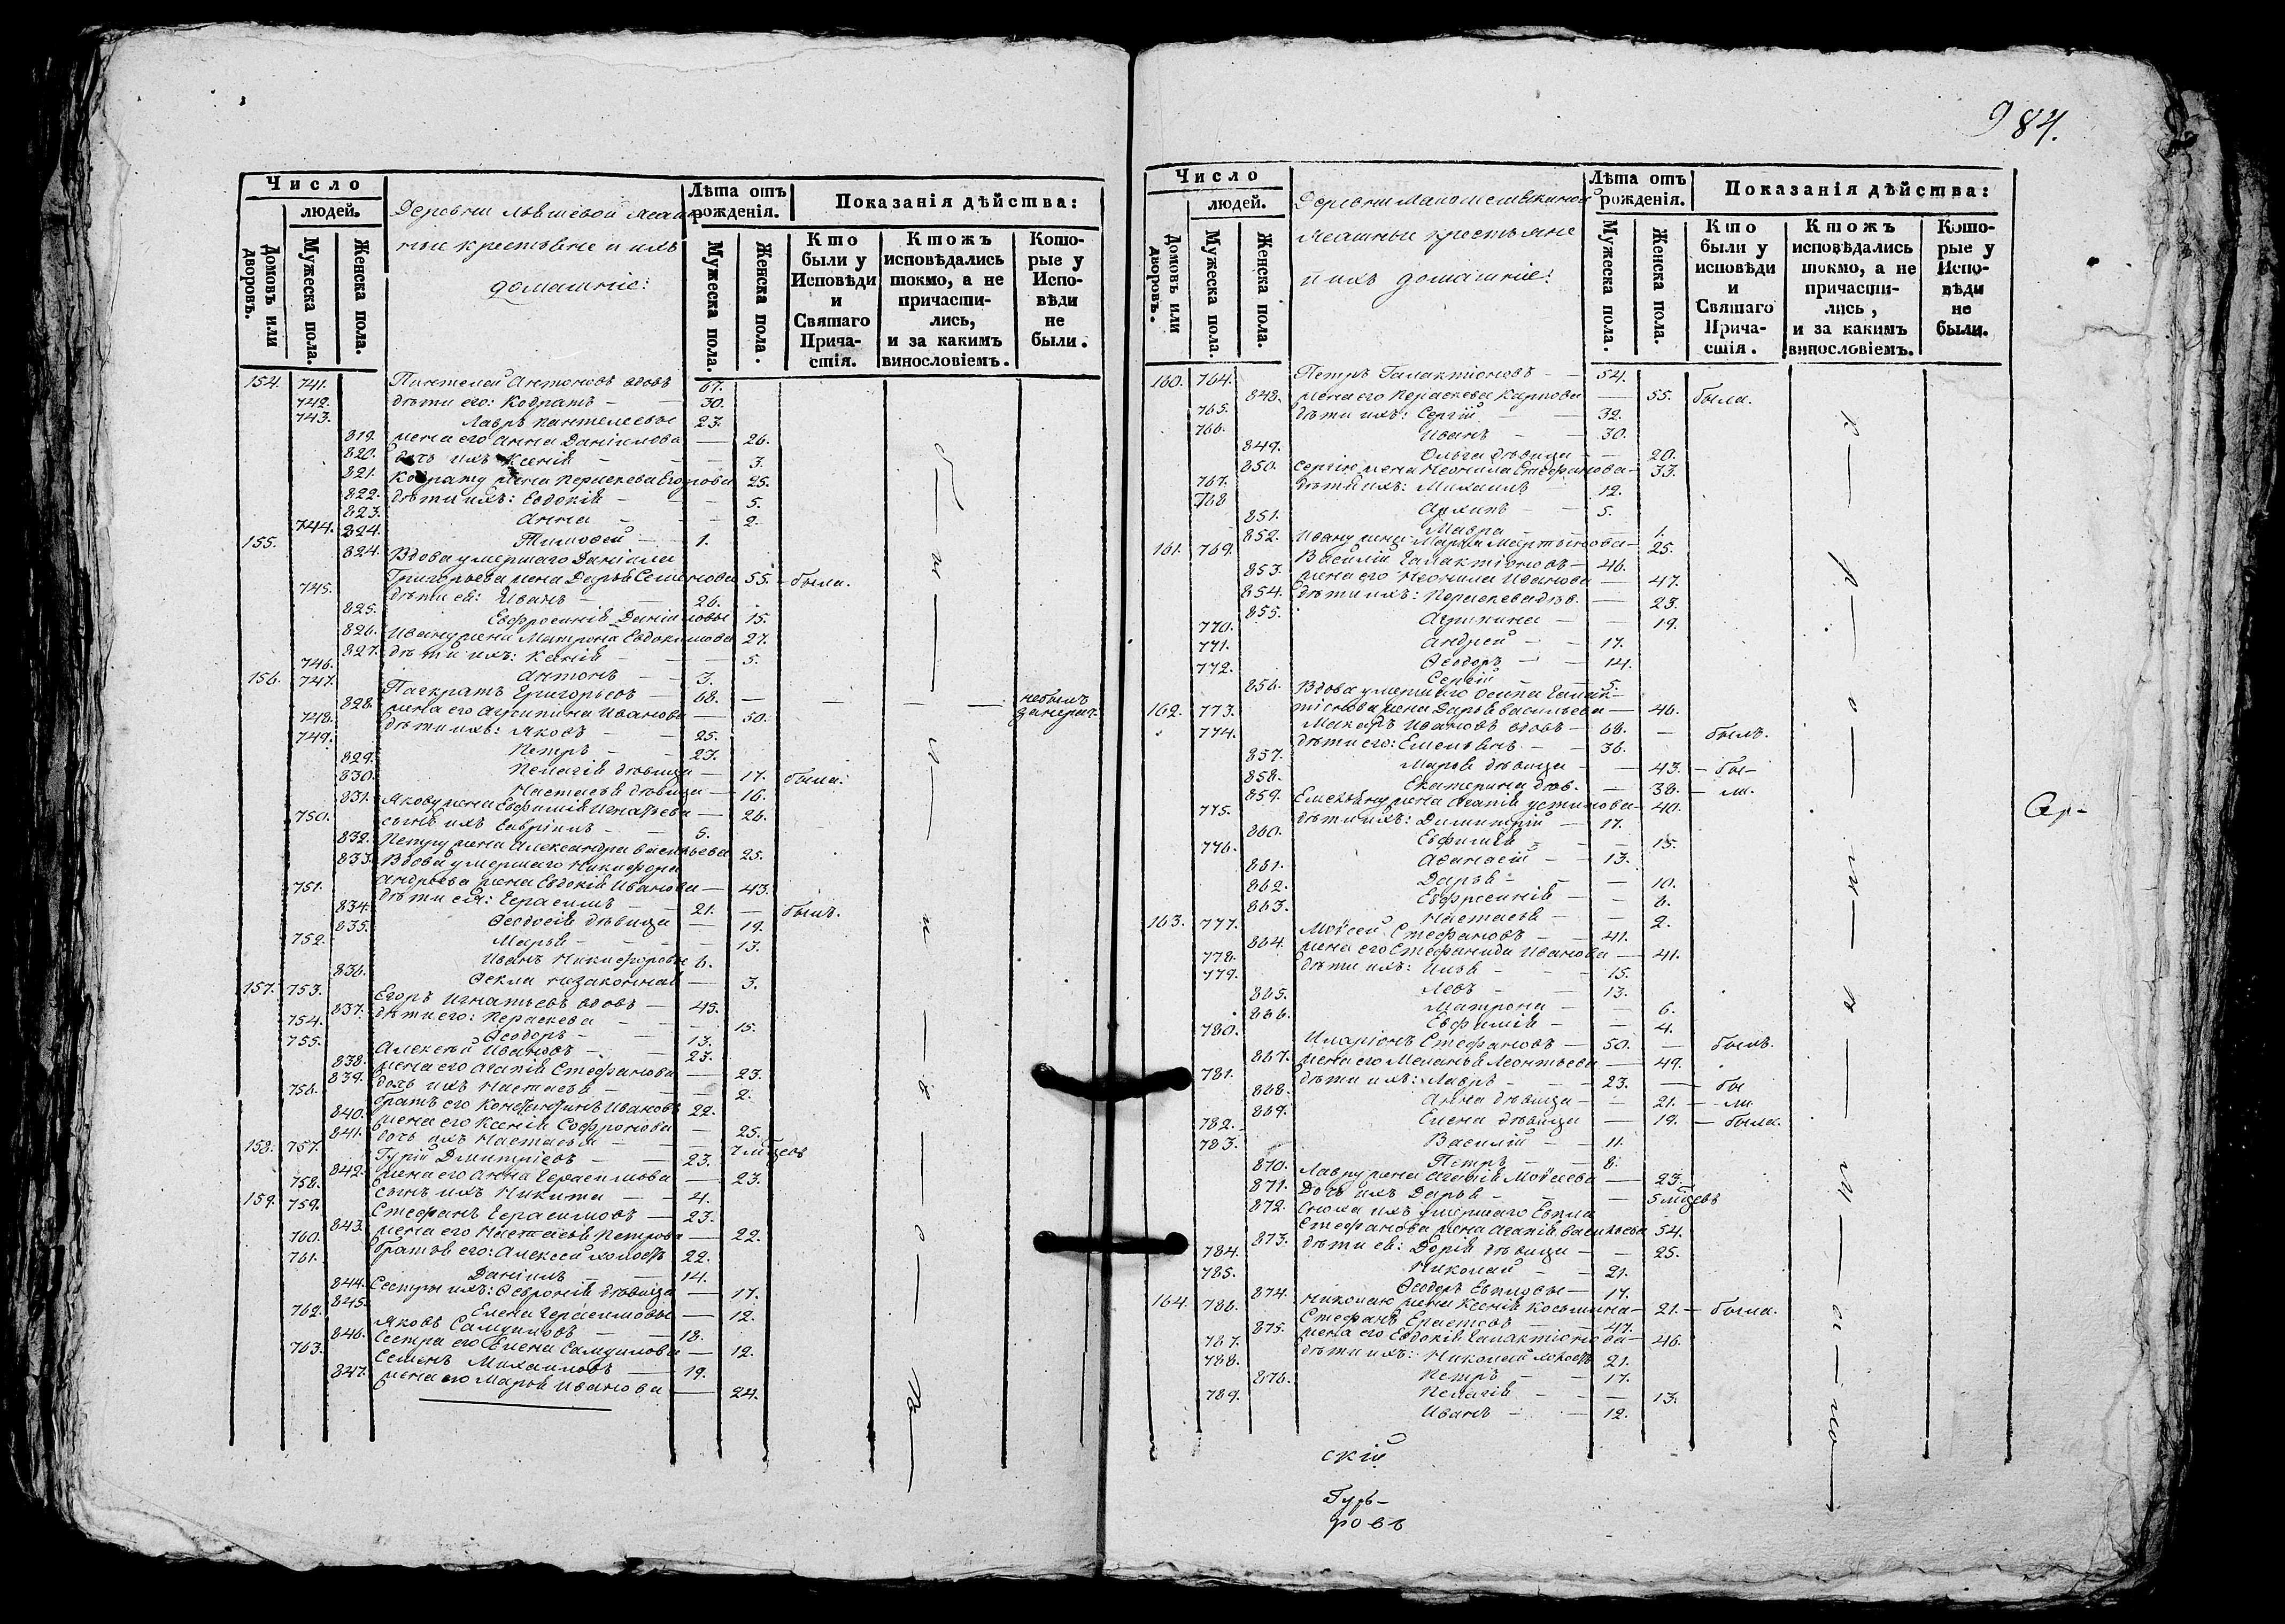 Число
людей.
Домовъ или дворовъ.
Мужеска пола.
Женска пола.
Деревни
ные крестьяне и ихъ
домашніе:
Лѣта отъ рожденія.
Мужеска пола.
Женска пола.
Показанія дѣйства:
Кто были у Исповѣди и Святаго Причастія.
Ктожъ исповѣдались токмо, а не причастились, и за какимъ винословіемъ.
Которые у Исповѣди не были.
154. 741. Пантелей Антоновъ вдовъ 67.
742. дѣти его: Кодратъ — 30.
743. Лавръ Пантелеевы 23.
819. жена его Анна Даніилова — 26.
820. дочь ихъ Ксенія — 3.
821. Кодрату жена Параскева Егорова 25.
822. дѣти ихъ: Евдокія — 5.
823. Анна — 2.
744. 824. Тимофей — 1.
155. 824. Вдова умершаго Даніила
Григорьева жена Дарья Семенова 55. — была.
745. дѣти ея: Иванъ — 26.
825. Евфросинія Даніиловы 15.
826. Ивану жена Матрона Евдокимова 27.
827. дѣти ихъ: Ксенія — 5.
746. Антонъ — 3.
156. 747. Панкратъ Григорьевъ — 68. — небылъ
828. жена его Агрипина Иванова — 50.
748. дѣти ихъ: Яковъ — 25.
749. Петръ — 23.
829. Пелагія дѣвица — 17. была.
830. Настасья дѣвица — 16.
831. Якову жена Евфимія Игнатьева — 26.
750. сынъ ихъ Гавріилъ — 5.
832. Петру жена Александра Васильева 25.
833. Вдова умершаго Никифора
Андреева жена Евдокія Иванова — 43.
751. дѣти ея: Герасимъ — 21. — былъ.
834. Феодосія дѣвица — 19.
835. Марья — 13.
752. Иванъ Никифоровы 6.
836. Фекла незаконная — 3.
157. 753. Егоръ Игнатьевъ вдовъ — 45.
837. дѣти его: Параскева — 15.
754. Феодоръ — 13.
755. Алексей Ивановъ — 23.
838. жена его Агапія Стефанова — 23.
839. дочь ихъ Настасья — 2.
756. братъ его Константинъ Ивановъ 22.
840. жена его Ксенія Софронова — 25.
841. дочь ихъ Настасья — 7 мцевъ
158. 757. Гурій Дмитріевъ — 23.
842. жена его Анна Герасимова — 23.
758. сынъ ихъ Никита — 4.
159. 759. Стефанъ Герасимовъ — 23.
843. жена его Настасья Петрова — 22.
760. братья его: Алексей холостъ 22.
761. Даніилъ — 14.
844. Сестры ихъ: Февронія дѣвица — 17.
845. Елена Герасимовы — 12.
762. Яковъ Самуиловъ — 18.
846. Сестра его Елена Самуилова — 12.
763. Семенъ Михаиловъ — 19.
847. жена его Марья Иванова — 24.
984.
Число
людей.
Домовъ или дворовъ.
Мужеска пола.
Женска пола.
Деревни
ясашные крестьяне
и ихъ домашніе:
Лѣта отъ рожденія.
Мужеска пола.
Женска пола.
Показанія дѣйства:
Кто были у исповѣди и Святаго Причастія.
Ктожъ исповѣдались токмо, а не причастились, и за какимъ винословіемъ.
Которые у Исповѣди не были.
160. 764. Петръ Галактіоновъ — 54.
848. жена его Параскева Карпова — 55. была.
765. дѣти ихъ: Сергій — 32.
766. Иванъ — 30.
849. Ольга дѣвица — 20.
850. Сергію жена Неонила Стефанова — 33.
767. дѣти ихъ: Михаилъ 12.
768 Архипъ — 5.
851. Мавра — 1.
852. Ивану жена Марья Мартынова — 25.
161. 769. Василій Галактіоновъ — 46.
853. жена его Неонила Иванова — 47.
854. дѣти ихъ: Параскева дѣв. — 23.
855. Агрипина — 19.
770. Андрей — 17.
771. Феодоръ — 14.
772. Сергій — 5.
856. Вдова умершаго Осипа Галак-
тіонова жена Дарья Васильева — 46.
162. 773. Макаръ Ивановъ вдовъ — 68. — былъ.
774. дѣти его: Емельянъ — 36.
857. Марья дѣвица — 43. — бы-
858. Екатерина дѣв. — 38. — ли.
859. Емельяну жена Агапія Устинова — 40.
775. дѣти ихъ: Димитрій — 17.
860. Евфимія — 15.
776. Афанасій — 13.
861. Дарья — 10.
862. Евфросинія — 6.
863. Настасья — 2.
163. 777. Моѵсей Стефановъ — 41.
864. жена его Стефанида Иванова — 41.
778. дѣти ихъ: Илья — 15.
779. Левъ — 13.
865. Матрона — 6.
866. Евфимія — 4.
780. Иларіонъ Стефановъ — 50. — былъ.
867. жена его Меланья Леонтьева — 49.
781. дѣти ихъ: Лавръ — 23. — бы
868. Анна дѣвица — 21. — ли
869. Елена дѣвица — 19. — была.
782. Василій — 11.
783. Петръ — 8.
870. Лавру жена Агафія Моѵсеева — 23.
871. Дочь ихъ Дарья — 5 мцевъ
872. Сноха ихъ умершаго Евпла
Стефанова жена Агапія Васильева 54.
873. дѣти ея: Дарія дѣвица — 25.
784. Николай — 21.
785. Феодоръ Евпловы — 17.
874. Николаю жена Ксенія Косьмина — 21. — была.
164. 786. Стефанъ Ерастовъ — 47.
875. жена его Евдокія Галактіонова — 46.
787. дѣти ихъ: Николай холостъ 21.
788. Петръ — 17.
876. Пелагія — 13.
789. Иванъ — 12.
скій
Гурь-
ровъ